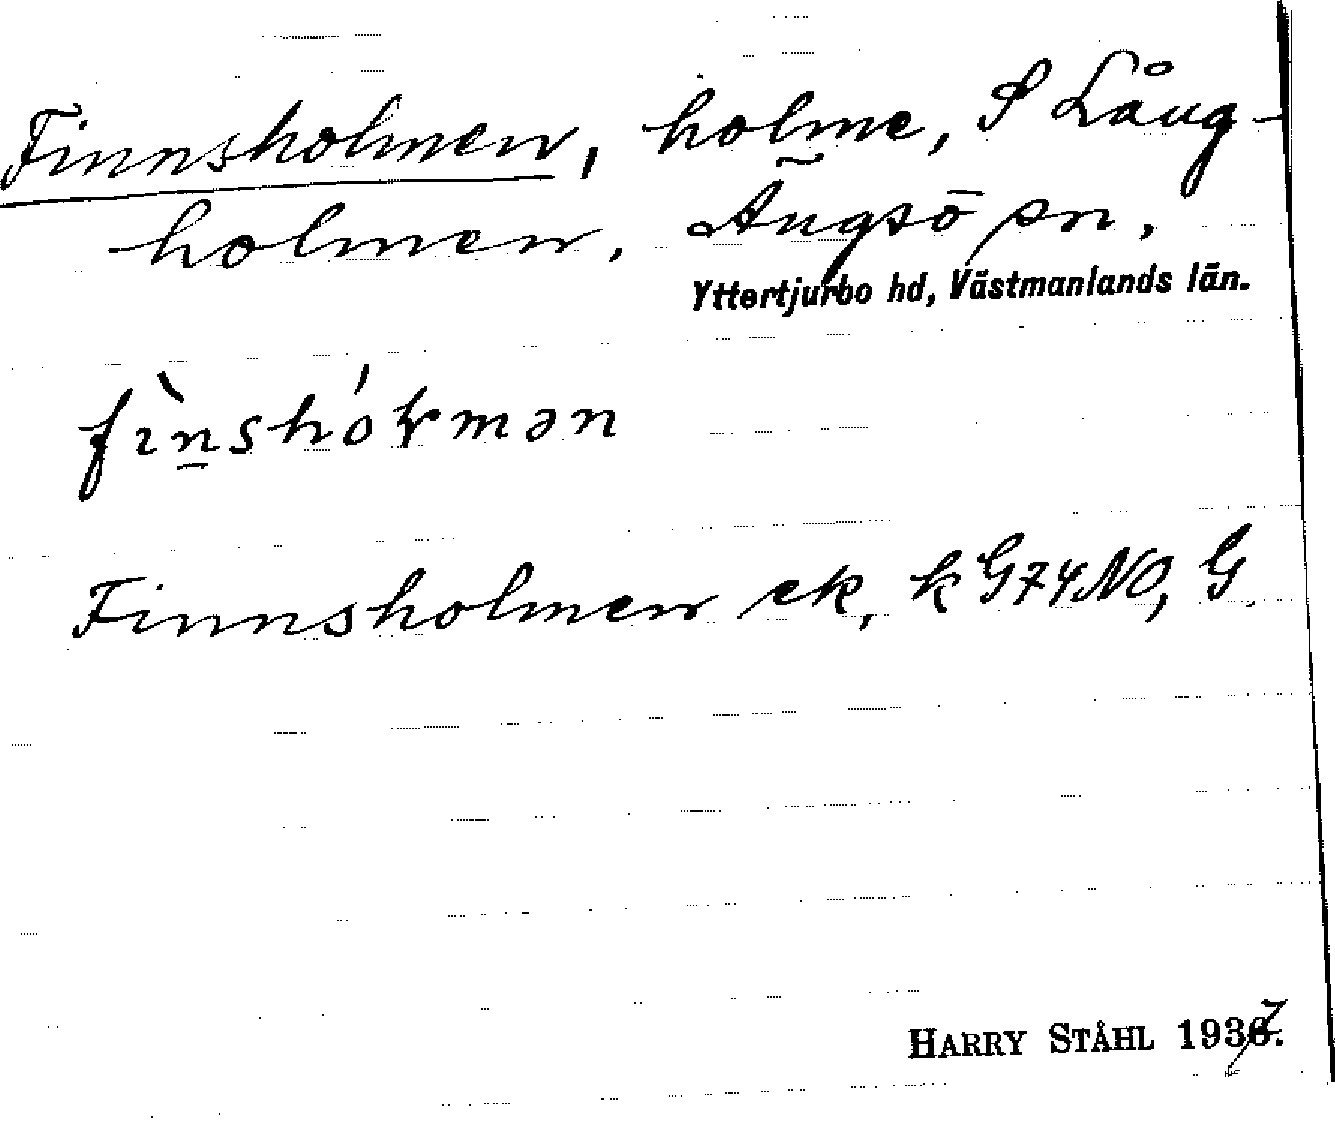 Finnsholmen, holme, S Lång-
holmen. Ängsö sn.
Yttertjurbo hd, Västmanlands län.
fìnshólmən
Finnsholmen ek, k G74NO, G
HARRY STÅHL 1937.